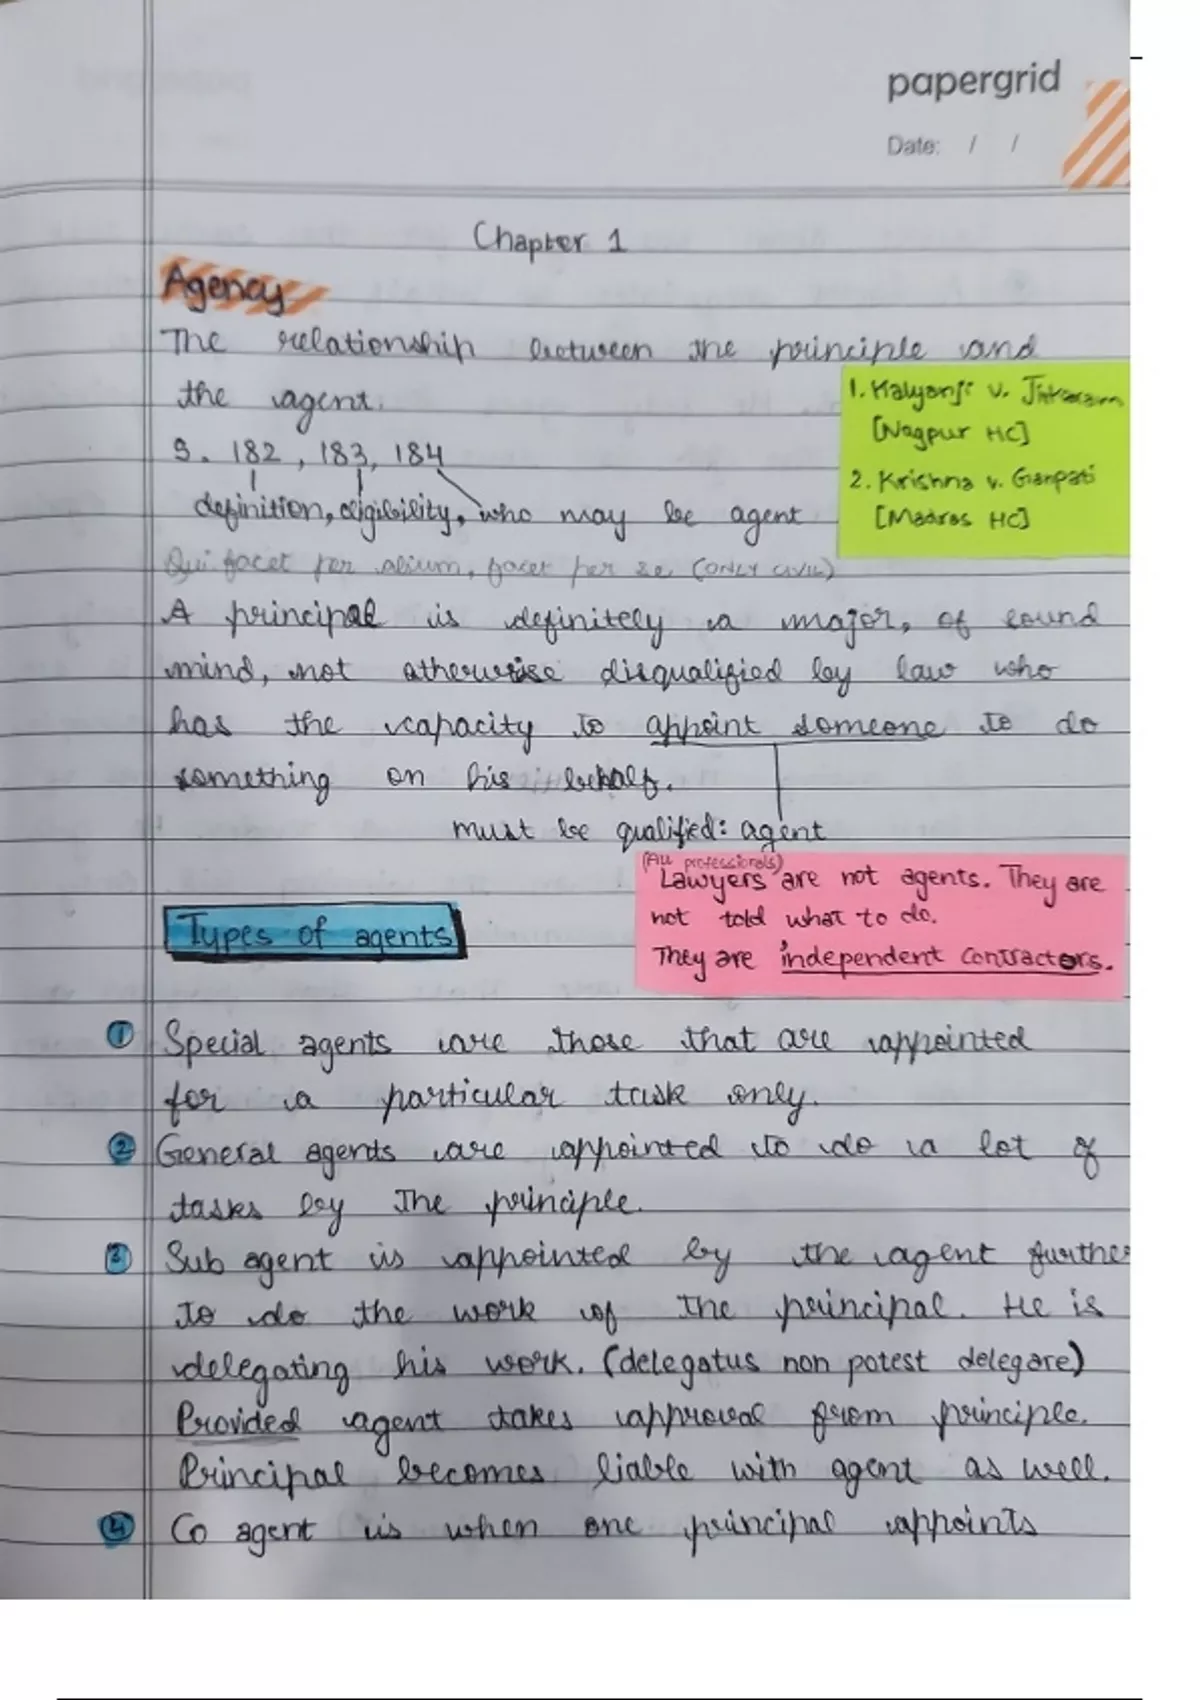 papergrid
Date: / /
Chapter 1
Agency
The relationship between the principle and
the agent.
1. Kalyanji v. Tirkaram
[Nagpur HC]
2. Krishna v. Ganpati
[Madras HC]
S. 182, 183, 184
definition, eligibility, who may be agent
Qui facet per alium, facet per se (ONLY CIVIL)
A principal is definitely a major, of sound
mind, not otherwise disqualified by law who
has the capacity to appoint someone to do
something on his behalf.
must be qualified: agent
(All professionals)
Lawyers are not agents. They are
not told what to do.
They are independent contractors.
Types of agents
1 Special agents are those that are appointed
for a particular task only.
2 General agents are appointed to do a lot of
tasks by the principle.
3 Sub agent is appointed by the agent further
to do the work of the principal. He is
delegating his work. (delegatus non potest delegare)
Provided agent takes approval from principle.
Principal becomes liable with agent as well.
4 Co agent is when one principal appoints